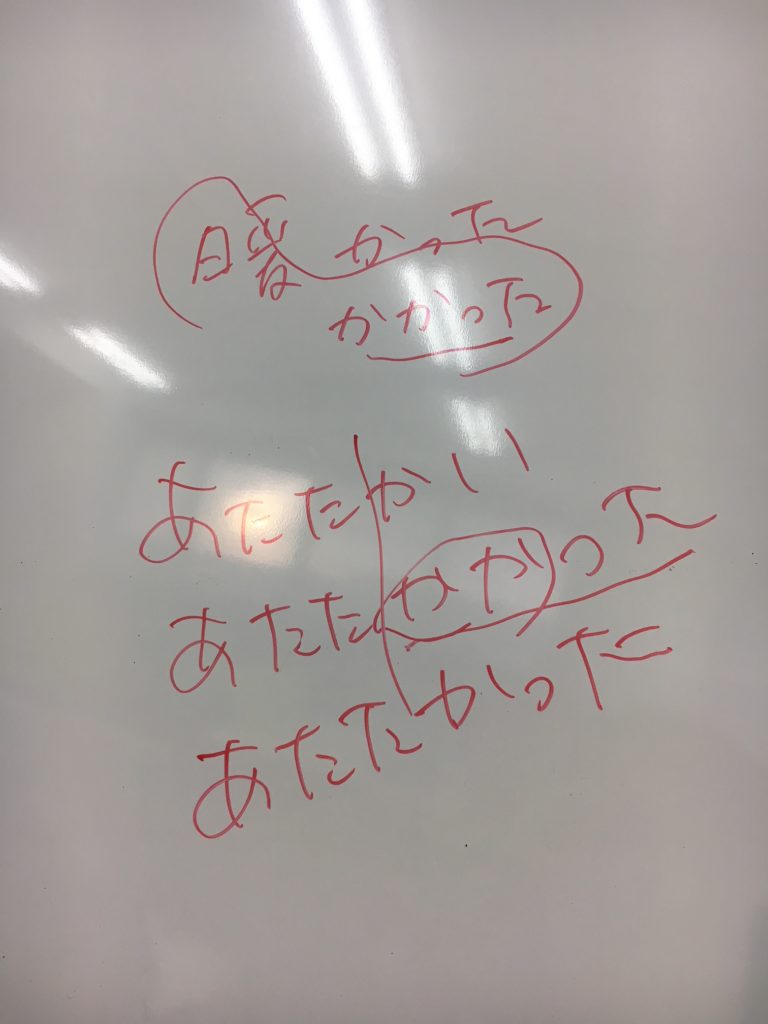 暖かった
かかった
あたたかい
あたたかかった
あたたかった